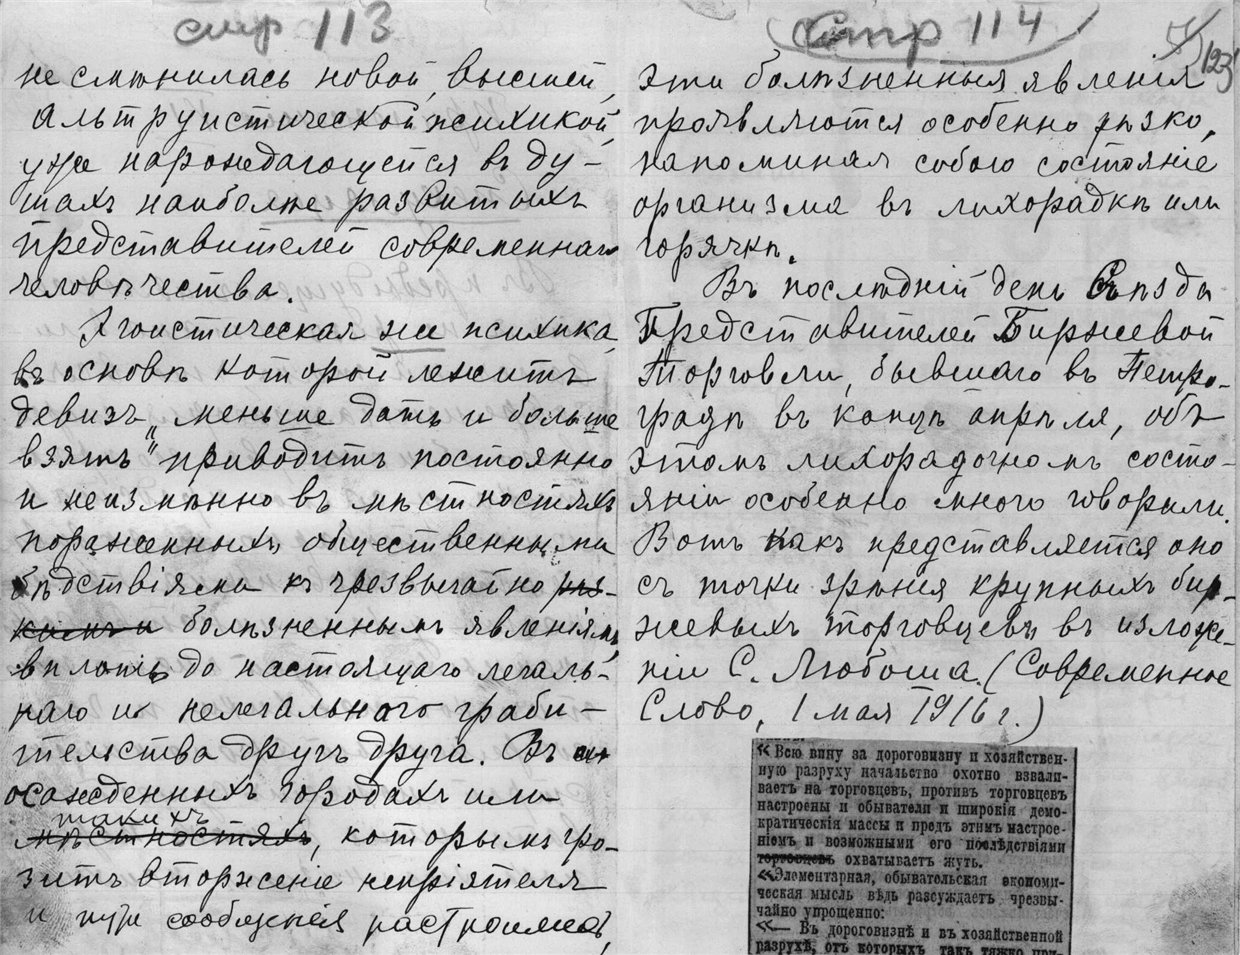 стр 113
не смѣнилась новой, высшей,
альтруистической психикой,
уже нарождающейся въ ду-
шахъ наиболѣе развитыхъ
представителей современнаго
человѣчества.
Эгоистическая же психика,
въ основѣ которой лежитъ
девизъ „меньше дать и больше
взять" приводитъ постоянно
и неизмѣнно въ мѣстностяхъ
пораженныхъ общественными
бѣдствіями къ чрезвычайно рѣз-
кимъ и болѣзненнымъ явленіямъ,
вплоть до настоящаго легаль-
наго и нелегальнаго граби-
тельства другъ друга. Въ
осажденныхъ городахъ или
такихъ
мѣстностяхъ, которымъ гро-
зитъ вторженіе непріятеля
и пути сообщенія разстроились,
Стр 114
123
эти болѣзненныя явленія
проявляются особенно рѣзко,
напоминая собою состояніе
организма въ лихорадкѣ или
горячкѣ.
Въ послѣдній день Съѣзда
Представителей Биржевой
Торговли, бывшаго въ Петро-
градѣ въ концѣ апрѣля, объ
этомъ лихорадочномъ состо-
яніи особенно много говорили.
Вотъ какъ представляется оно
съ точки зрѣнія крупныхъ бир-
жевыхъ торговцевъ въ изложе-
ніи С. Любоша. (Современное
Слово, 1 мая 1916 г.)
«Всю вину за дороговизну и хозяйствен-
ную разруху начальство охотно взвали-
ваетъ на торговцевъ, противъ торговцевъ
настроены и обыватели и широкія демо-
кратическія массы и предъ этимъ настрое-
ніемъ и возможными его послѣдствіями
торговцевъ охватываетъ жуть.
«Элементарная, обывательская экономи-
ческая мысль вѣдь разсуждаетъ чрезвы-
чайно упрощенно:
«— Въ дороговизнѣ и въ хозяйственной
разрухѣ, отъ которыхъ такъ тяжко при-